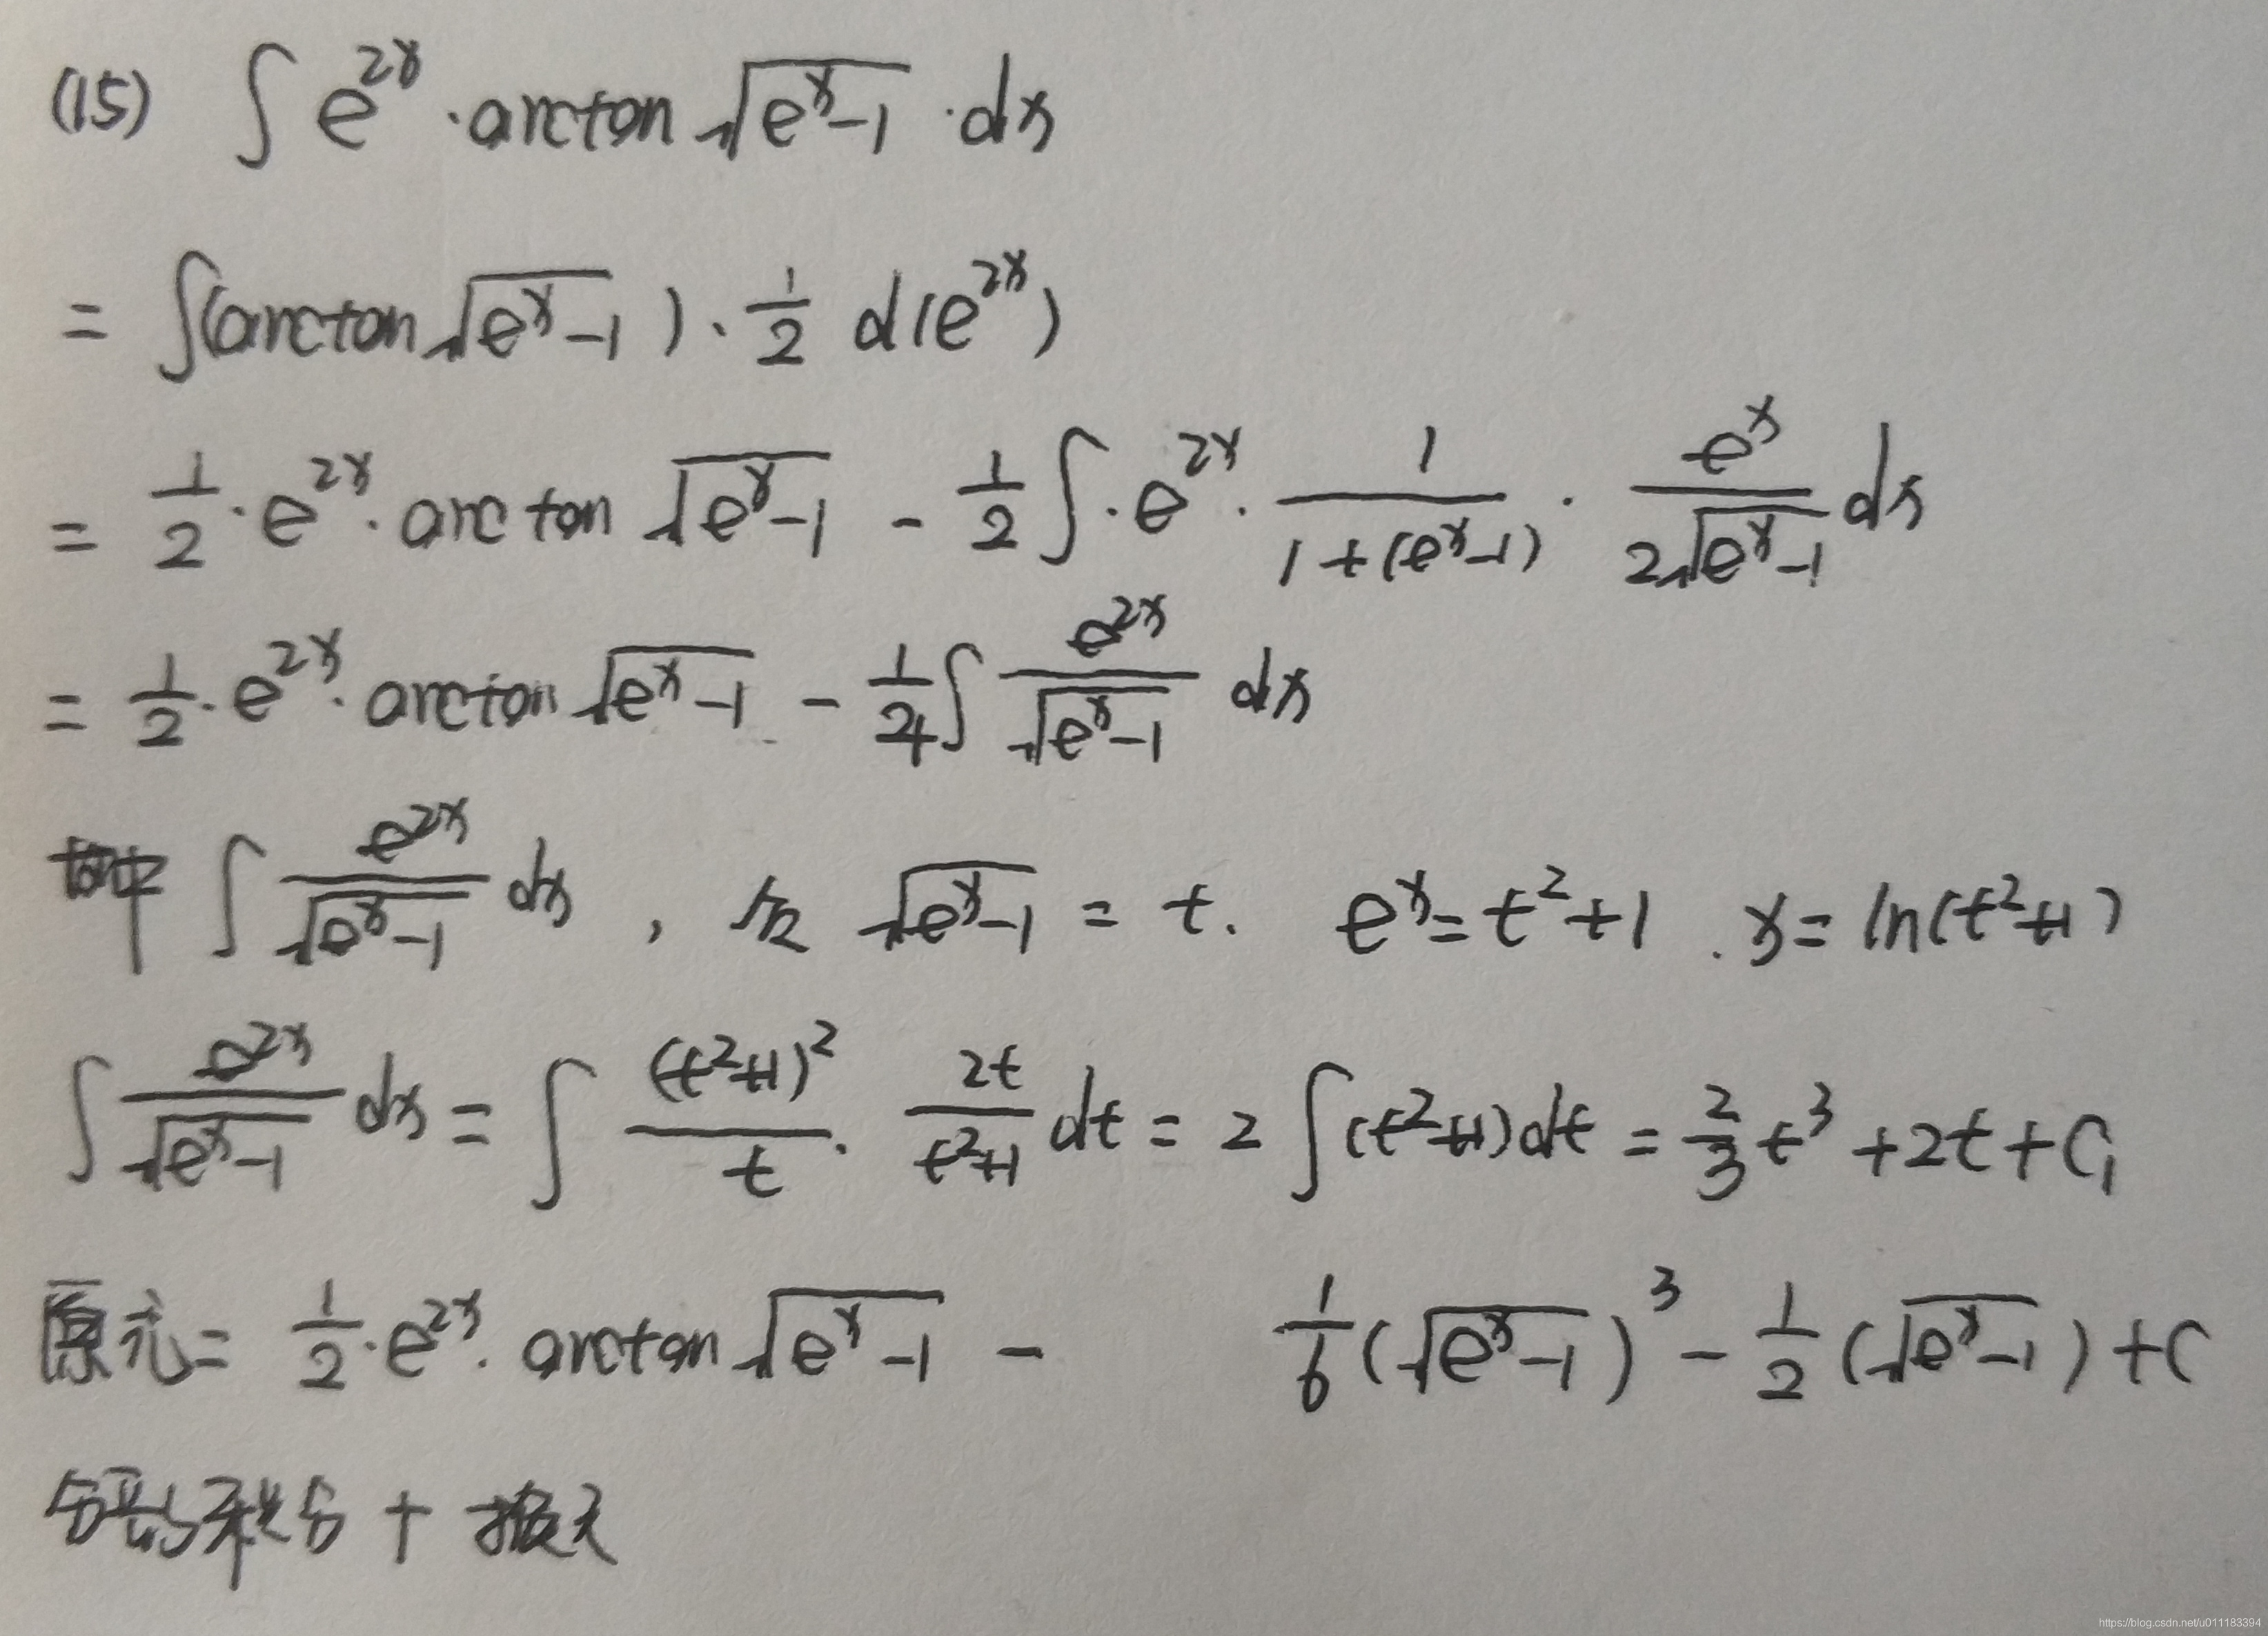 (15) ∫ e^{2x} · arctan √(e^x-1) · dx
= ∫(arctan √(e^x-1)) · 1/2 d(e^{2x})
= 1/2 · e^{2x} · arctan √(e^x-1) - 1/2 ∫ · e^{2x} · 1/(1+(e^x-1)) · e^x/(2√(e^x-1)) dx
= 1/2 · e^{2x} · arctan √(e^x-1) - 1/4 ∫ e^{2x}/√(e^x-1) dx
∫ e^{2x}/√(e^x-1) dx , 设 √(e^x-1) = t. e^x = t^2+1 . x = ln(t^2+1)
∫ e^{2x}/√(e^x-1) dx = ∫ (t^2+1)^2/t · 2t/(t^2+1) dt = 2 ∫(t^2+1)dt = 2/3 t^3 + 2t + C_1
原式 = 1/2 · e^{2x} · arctan √(e^x-1) - 1/6 (√(e^x-1))^3 - 1/2 (√(e^x-1)) + C
分部积分 + 换元
https://blog.csdn.net/u011183394